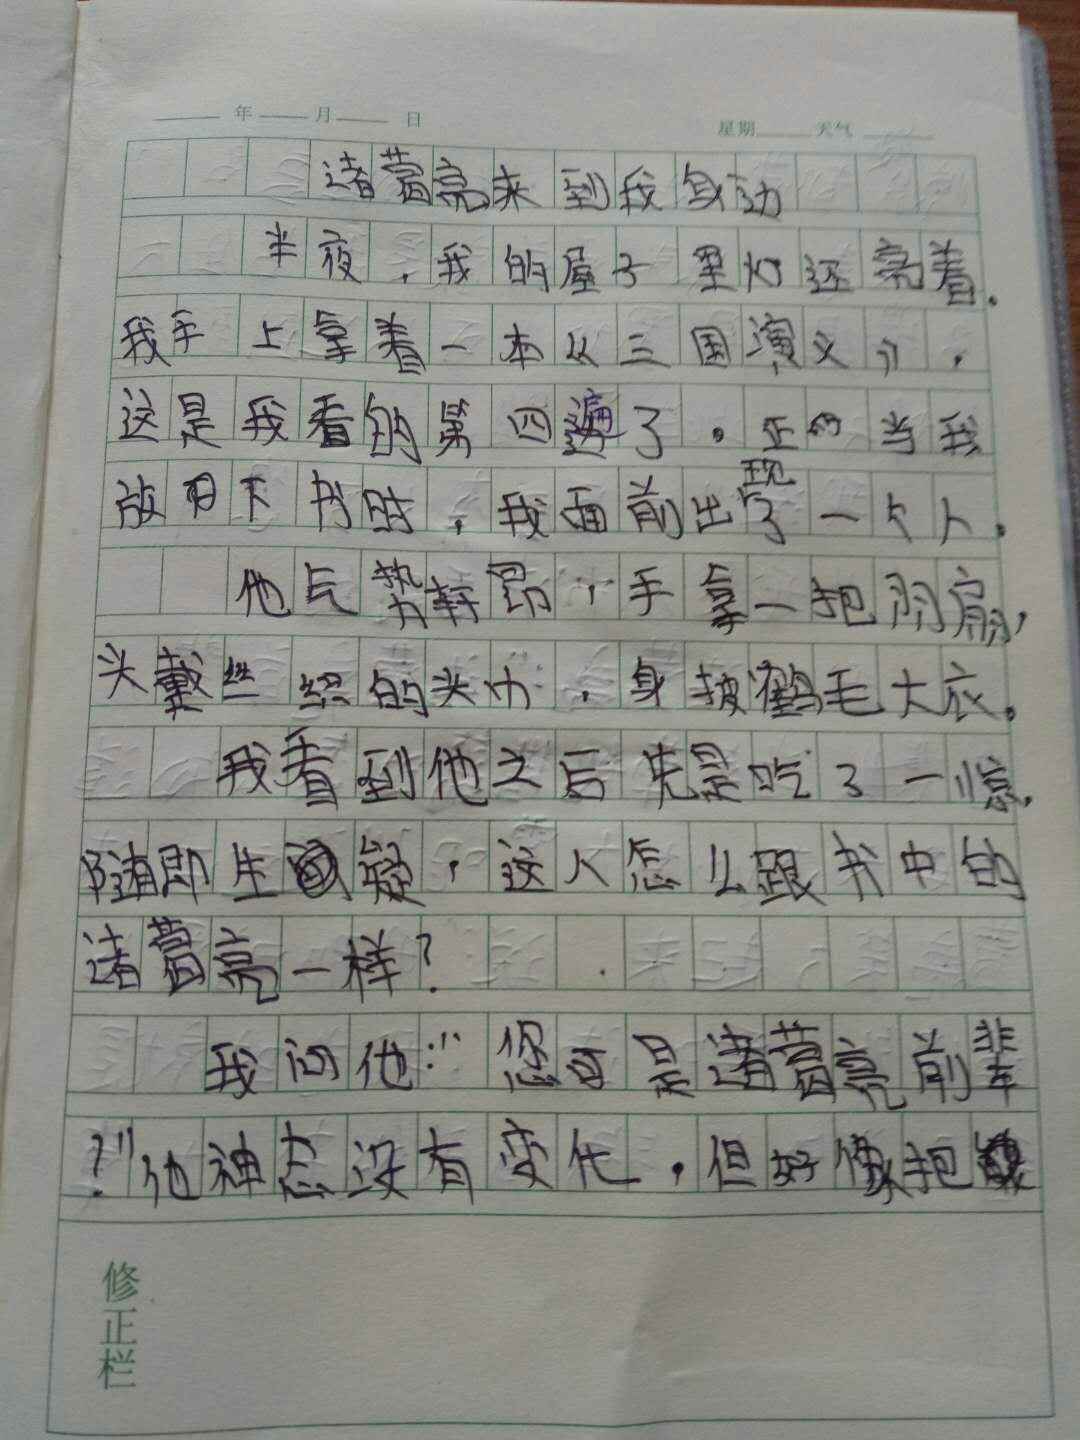 年 月 日 星期 天气
诸葛亮来到我身边
半夜，我的屋子里灯还亮着。
我手上拿着一本《三国演义》，
这是我看的第四遍了。正当我
放下书时，我面前出现了一个人。
他气势轩昂，手拿一把羽扇，
头戴丝织的头巾，身披鹤毛大衣。
我看到他之后先是吃了一惊，
随即生疑，这人怎么跟书中的
诸葛亮一样？
我问他："您可是诸葛亮前辈
？"他神态没有变化，但好像把
修正栏